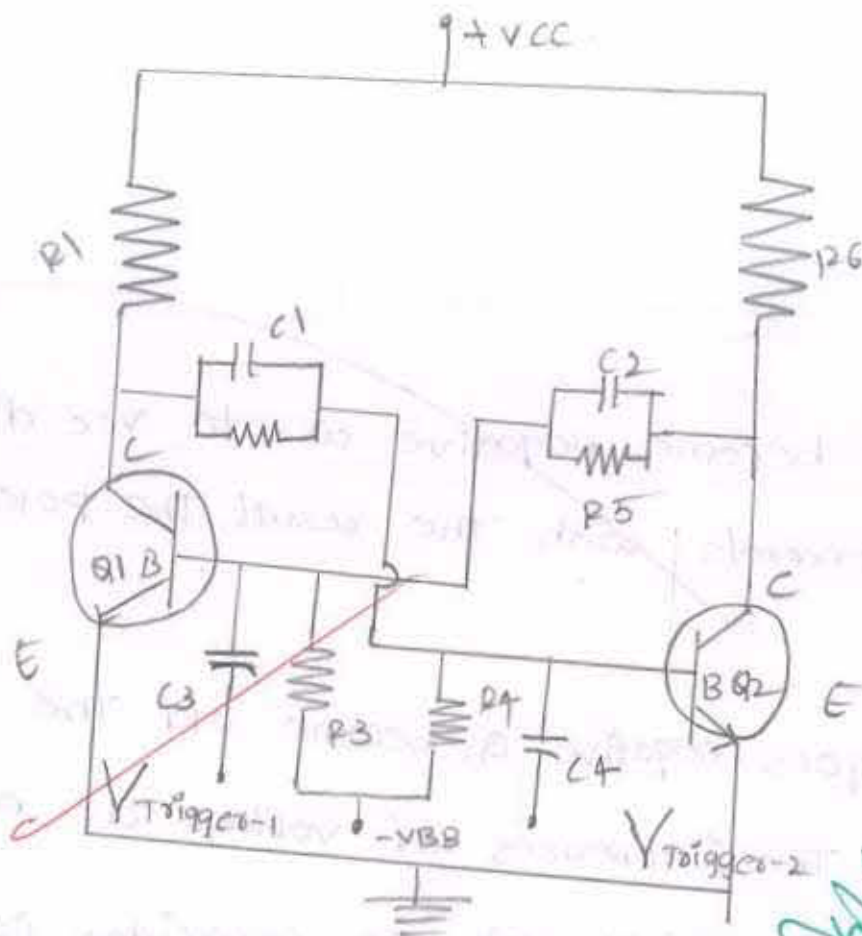 +VCC
R1
R6
C1
C2
R5
C
C
Q1 B
E
B Q2
E
C3
R3
R4
C4
VTrigger-1
-VBB
VTrigger-2